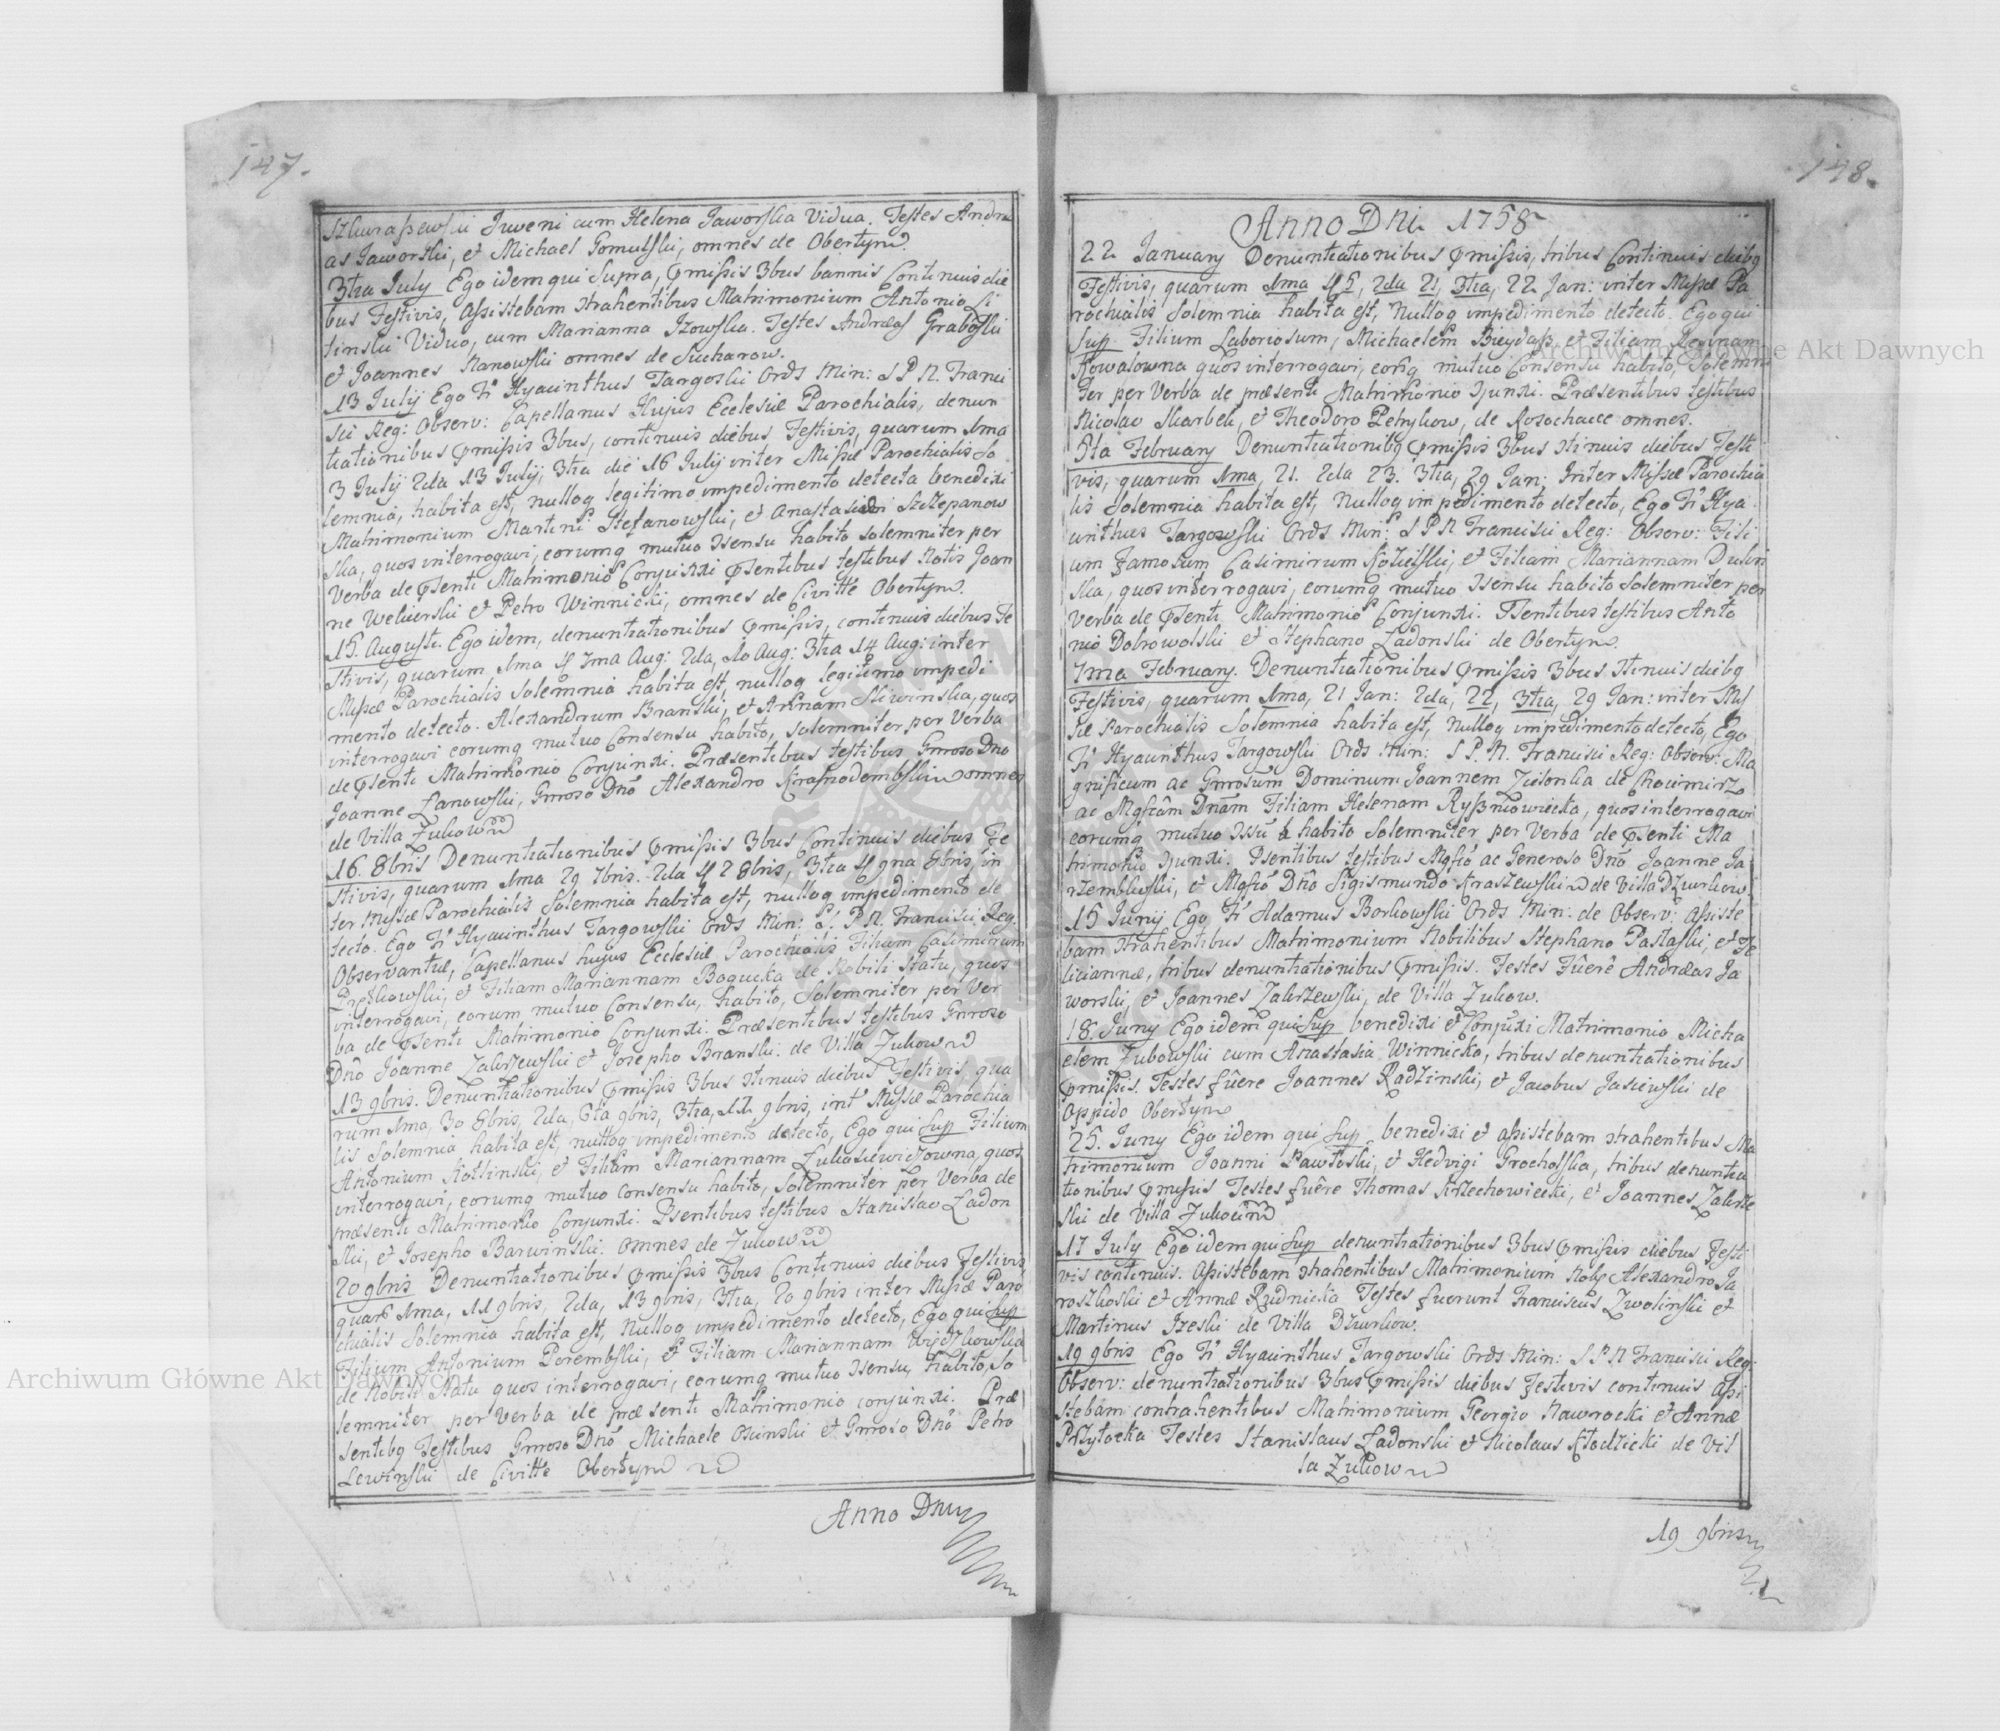 147.
Juveni cum Helena Jaworska Vidua. Testes Andre
as Jaworski, et Michael Gomulski, omnes de Obertyn
3tia July Ego idem qui Supra, pmissis 3bus bannis Continuis die
bus Festivis, Assistebam trahentibus Matrimonium Antonio Li
tinski Viduo, cum Marianna Izowska. Testes Andreas Graboski
et Joannes Nanowski omnes de Sucharow.
13 July Ego Fr Hyacinthus Targoski Ords Min: S P N. Franci
sci Reg: Observ: Capellanus Hujus Ecclesiæ Parochialis, denun
tiationibus pmissis 3bus, continuis diebus Festivis, quarum 1ma
3 July 2da 13 July, 3tia die 16 July inter Missæ Parochialis So
lemnia, habita est, nulloq legitimo impedimento detecta benedixi
Matrimonium Martini Stefanowski, et Anastasiæ Sczepanow
ska, quos interrogavi, eorumq mutuo Nsensu habito solemniter per
Verba de Psenti Matrimonio Conjunxi Psentibus testibus Notis Joan
ne Wekierski et Petro Winnicki, omnes de Civitte Obertyn.
15. Augusti. Ego idem, denuntiationibus pmissis, continuis diebus Fe
stivis, quarum 1ma 7ma Aug: 2da, 10 Aug: 3tia 14 Aug: inter
Missæ Parochialis Solemnia habita est, nulloq legitimo impedi
mento detecto. Alexandrum Branski, et Annam Sliwinska, quos
interrogavi eorumq mutuo Consensu habito, solemniter per Verba
de Psenti Matrimonio Conjunxi. Præsentibus testibus Gnroso Dno
Joanne Lanowski, Gnroso Dno Alexandro Krasnodembski omnes
de Villa Zukow
16. 8bris Denuntiationibus pmissis 3bus Continuis diebus Fe
stivis, quarum 1ma 29 7bris. 2da 2 8bris, 3tia 9na 8bris, in
ter Missæ Parochialis Solemnia habita est, nulloq impedimento de
tecto. Ego Fr Hyacinthus Targowski Ords Min: S. P. N. Francisci Reg:
Observantiæ, Capellanus hujus Ecclesiæ Parochialis Filium Casimirum
et Filiam Mariannam Bogucka de Nobili Statu, quos
interrogavi, eorum mutuo Consensu, habito, Solemniter per Ver
ba de Psenti Matrimonio Conjunxi. Præsentibus testibus Gnroso
Dno Joanne Zakrzewski et Josepho Branski. de Villa Zukow
13 9bris. Denuntiationibus pmissis 3bus Ntinuis diebus Festivis, qua
rum 1ma, 30 8bris, 2da, 6ta 9bris, 3tia, 12 9bris, int Missæ Parochia
lis Solemnia habita est, nulloq impedimento detecto, Ego qui Sup Filium
Antonium Kotlinski, et Filiam Mariannam Lukasiewiczowna, quos
interrogavi, eorumq mutuo consensu habito, Solemniter per Verba de
præsenti Matrimonio Conjunxi. Psentibus testibus Stanislao Ladon
ski, et Josepho Barwinski. omnes de Zukow
20 9bris Denuntiationibus pmissis 3bus Continuis diebus Festivis
quar 1ma, 11 9bris, 2da, 13 9bris, 3tia, 20 9bris inter Missæ Paro
chialis Solemnia habita est, Nulloq impedimento detecto, Ego qui Sup
Filium Antonium Porembski, et Filiam Mariannam
de Nobili Statu quos interrogavi, eorumq mutuo Nsensu, habito, So
lemniter per Verba de præsenti Matrimonio conjunxi. Præ
sentibq Testibus Gnroso Dno Michaele Osinski et Gnroso Dno Petro
Lewinski de Civitte Obertyn
Anno Dni
148.
Anno Dni 1758
22 January Denuntiationibus pmissis, tribus Continuis diebq
Festivis, quarum 1ma 15, 2da 21, 3tia, 22 Jan: inter Missæ Pa
rochialis Solemnia habita est, Nulloq impedimento detecto. Ego qui
Sup Filium Laboriosum, Michaelem et Filiam Reginam
Kowalowna quos interrogavi, eorq mutuo Consensu habito, Solemni
ter per Verba de præsenti Matrimonio Njunxi. Præsentibus testibus
Nicolao Skarbek, et Theodoro Petrykow, de Rosochacz omnes.
5ta February Denuntiationibq pmissis 3bus Ntinuis diebus Festi
vis, quarum 1ma, 21. 2da 23. 3tia, 29 Jan: Inter Missæ Parochia
lis Solemnia habita est, Nulloq impedimento detecto, Ego Fr Hya
cinthus Targowski Ords Min: S P N Francisci Reg: Observ: Fili
um Famosum Casimirum et Filiam Mariannam Dulin
ska, quos interrogavi, eorumq mutuo Nsensu habito Solemniter per
Verba de Psenti, Matrimonio Conjunxi. Psentibus testibus Anto
nio Dobrowolski et Stephano Ladonski de Obertyn.
7ma February. Denuntiationibus pmissis 3bus Ntinuis diebq
Festivis, quarum 1ma, 21 Jan: 2da, 22, 3tia, 29 Jan: inter Mis
sæ Parochialis Solemnia habita est, Nulloq impedimento detecto, Ego
Fr Hyacinthus Targowski Ords Min: S P. N. Francisci Reg: Observ: Ma
gnificum ac Gnrosum Dominum Joannem Zielonka de Chocimirz
ac Mgfcam Dnam Filiam Helenam quos interrogavi
eorumq mutuo Nssu habito Solemniter, per Verba de Psenti Ma
trimonio Njunxi. Psentibus testibus Mgfco ac Generoso Dno Joanne Ja
rzembkowski, et Mgfco Dno Sigismundo Kraszewski de Villa Dzurkow
15 Junij Ego Fr Adamus Borkowski Ords Min: de Observ: Assiste
bam Ntrahentibus Matrimonium Nobilibus Stephano Paslaski, et Fe
liciannæ, tribus denuntiationibus pmissis. Testes Fuere Andreas Ja
worski, et Joannes Zakrzewski, de Villa Zukow.
18. Juny Ego idem qui Sup benedixi et Conjuxi Matrimonio Micha
elem Zubowski cum Anastasia Winnicka, tribus denuntiationibus
pmissis. Testes fuere Joannes Radzinski, et Jacobus Jasiewski de
oppido Obertyn
25. Juny Ego idem qui Sup benedixi et assistebam Ntrahentibus Ma
trimonium Joanni Pawloski, et Hedvigi Grochoska, tribus denuntia
tionibus pmissis Testes fuere Thomas Krzechowiecki, et Joannes Zakrze
ski de Villa Zukow
17 July Ego idem qui Sup denuntiationibus 3bus pmissis diebus Festi
vis continuis. Assistebam Ntrahentibus Matrimonium Nob Alexandro Ja
roszkoski et Annæ Rudnicka Testes fuerunt Franciscus Zwolinski et
Martinus Izeski de Villa Dzurkow.
19 9bris Ego Fr Hyacinthus Targowski Ords Min: S P N Francisci Reg:
Observ: denuntiationibus 3bus pmissis diebus Festivis continuis Assi
stebam contrahentibus Matrimonium Georgio Nawrocki et Annæ
Przytocka Testes Stanislaus Ladonski et Nicolaus Klodzicki de Vil
la Zukow
19 9bris
Archiwum Główne Akt Dawnych
Archiwum Główne Akt Dawnych